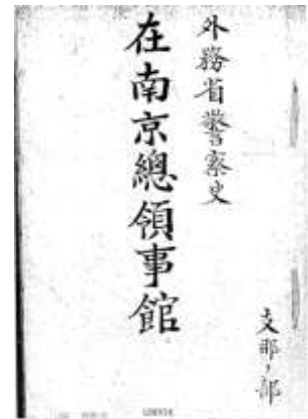 外務省警察史
在南京總領事館
支那ノ部